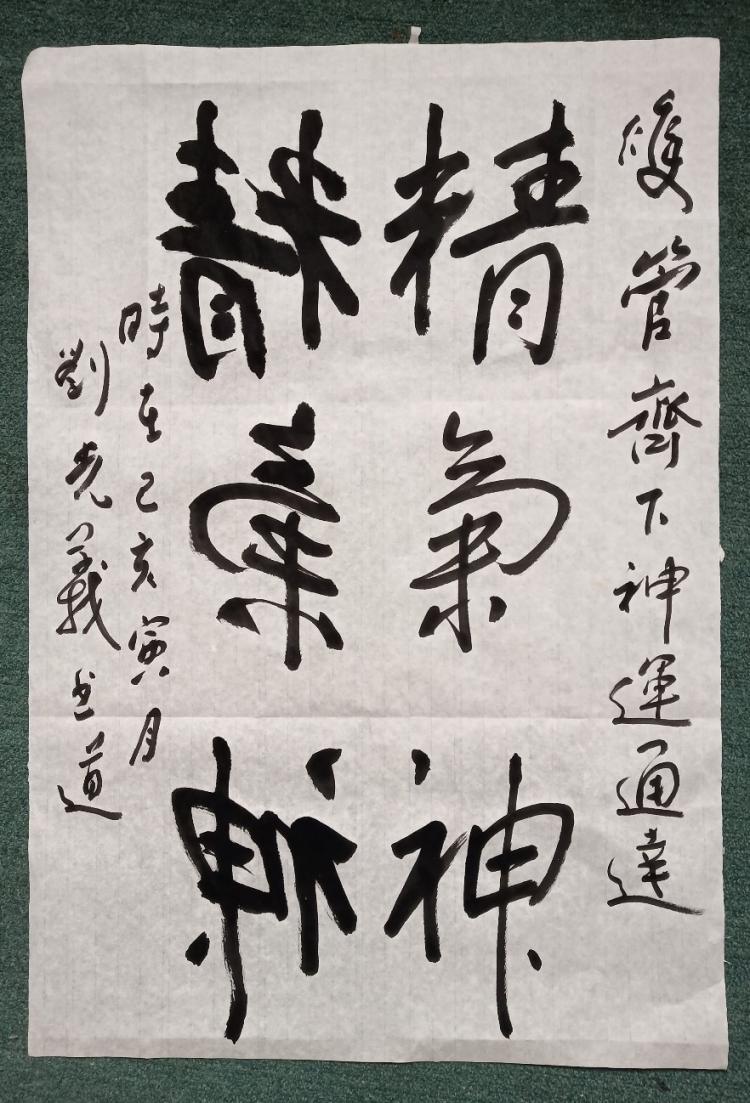 雙管齊下神運通達
精氣神
精氣神
時在己亥寅月
劉義书道